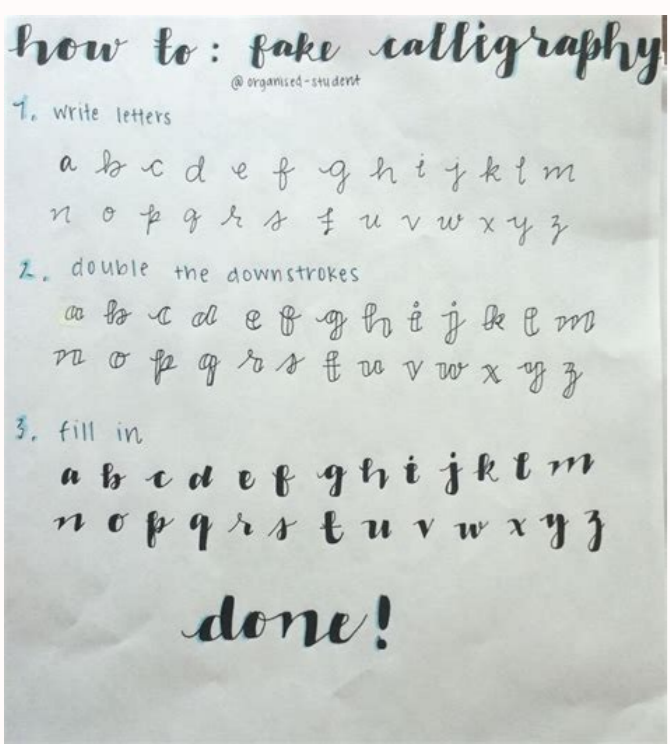 how to: fake calligraphy
@organised-student
1. write letters
a b c d e f g h i j k l m
n o p q r s t u v w x y z
2. double the downstrokes
a b c d e f g h i j k l m
n o p q r s t u v w x y z
3. fill in
a b c d e f g h i j k l m
n o p q r s t u v w x y z
done!